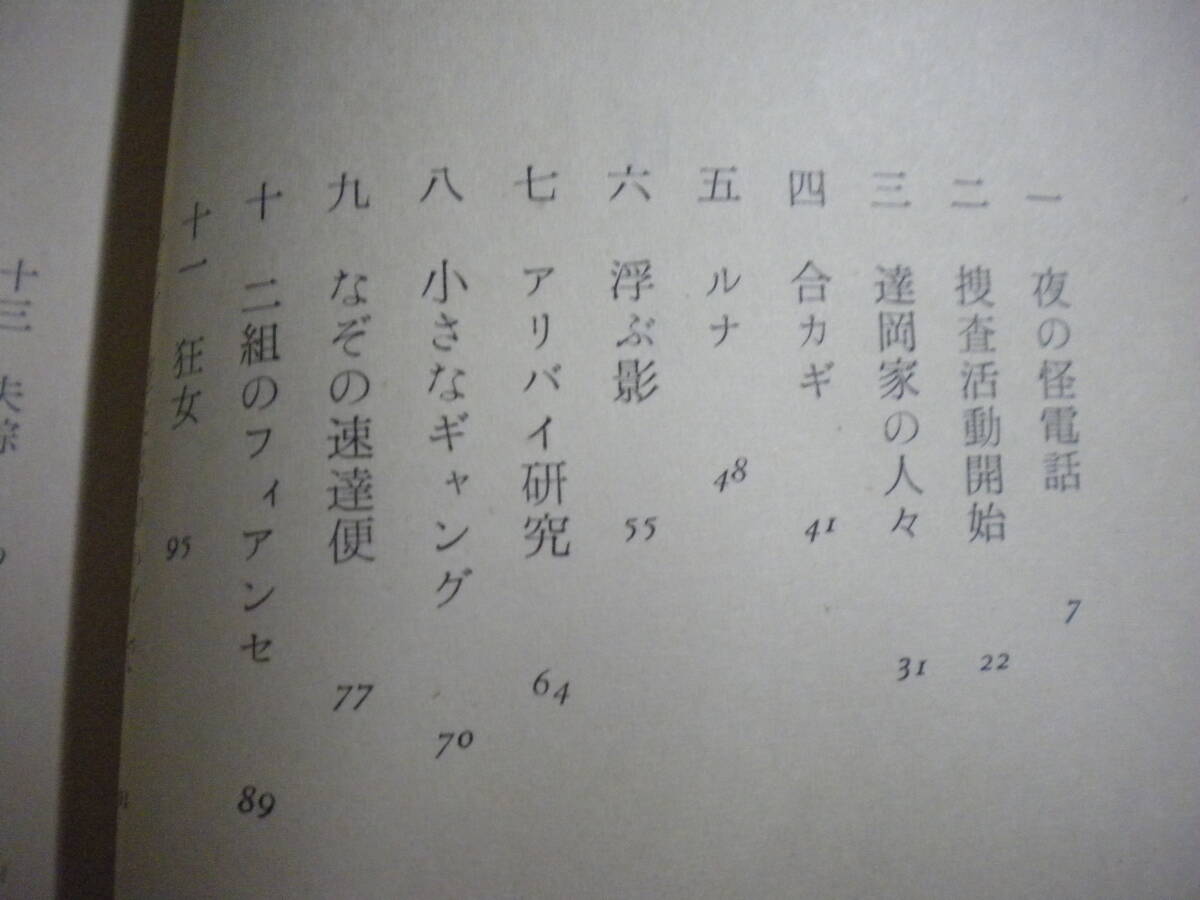 一 夜の怪電話 7
二 捜査活動開始 22
三 達岡家の人々 31
四 合カギ 41
五 ルナ 48
六 浮ぶ影 55
七 アリバイ研究 64
八 小さなギャング 70
九 なぞの速達便 77
十 二組のフィアンセ 89
十一 狂女 95
十三 失踪